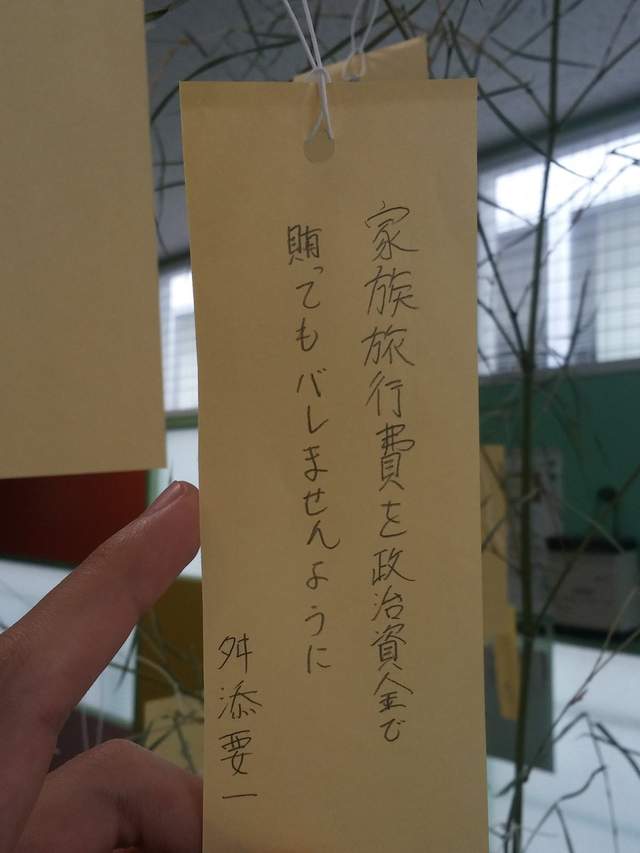 家族旅行費を政治資金で
賄ってもバレませんように
舛添要一